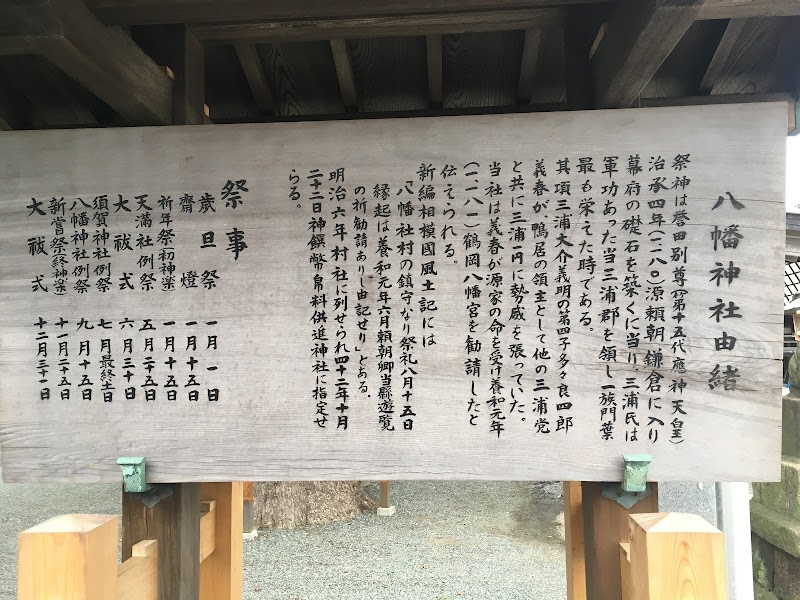 八幡神社由緒
祭神は誉田別尊(第十五代應神天皇)
治承四年(一一八〇)源頼朝鎌倉に入り
幕府の礎石を築くに当り、三浦氏は
軍功あった当三浦郡を領し一族門葉
最も栄えた時である。
其項三浦大介義明の第四子多々良四郎
義春が鴨居の領主として他の三浦党
と共に三浦一円に勢威を張っていた。
当社は義春が源家の命を受け養和元年
(一一八一)鶴岡八幡宮を勧請したと
伝えられる。
新編相模國風土記には
「八幡社村の鎮守なり祭礼八月十五日
縁起は養和元年六月頼朝卿当縣遊覧
の折勧請ありし由記せり」とある。
明治六年村社に列せられ四十二年十月
二十二日神饌幣帛料供進神社に指定せ
らる。
祭事
歳旦祭 一月一日
齋燈 一月十五日
祈年祭(初神楽) 一月十五日
天満社例祭 五月二十五日
大祓式 六月三十日
須賀神社例祭 七月最終土日
八幡神社例祭 九月十五日
新嘗祭(終神楽) 十一月二十五日
大祓式 十二月三十一日